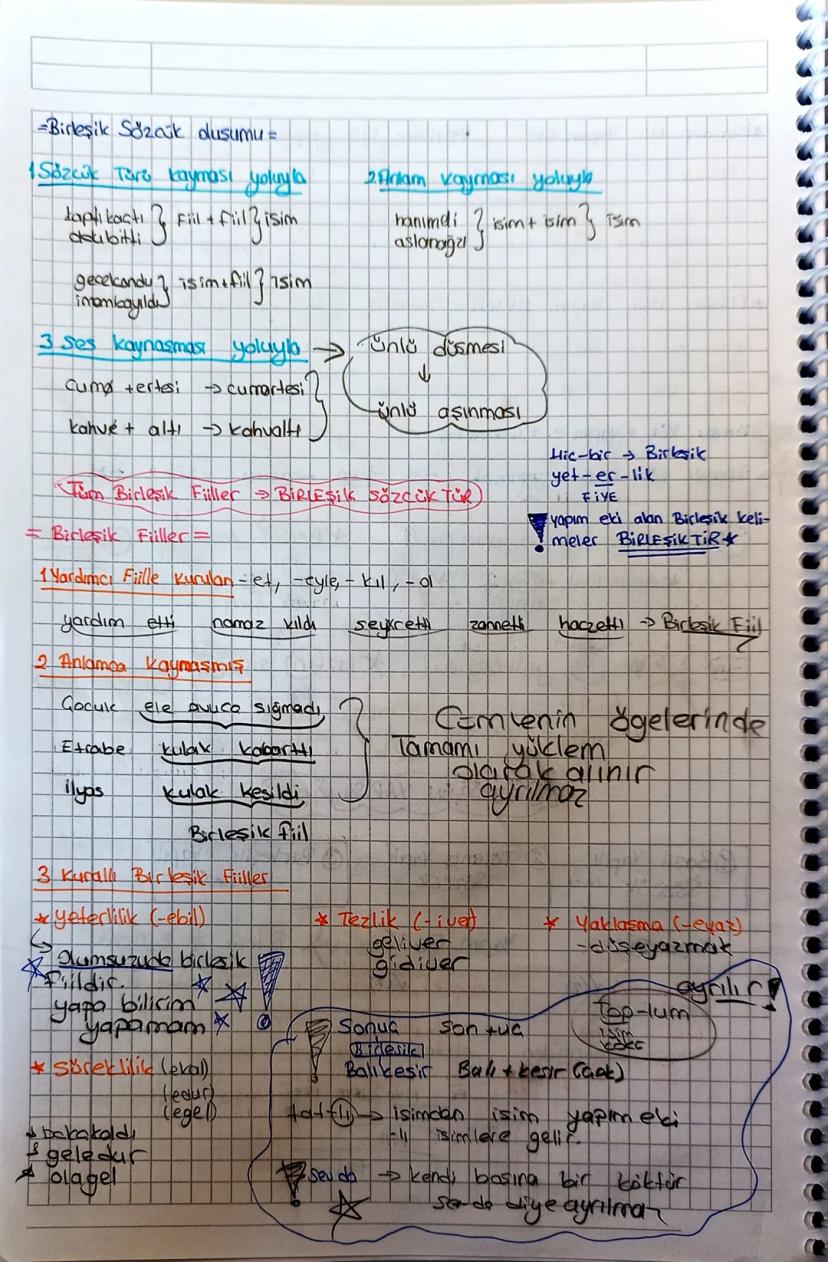 =Birleşik Sözcük olusumu=
1 Sözcük Türü kayması yoluyla
2 Anlam kayması yoluyla
kaptı kactı } Fiil + fiil } isim
dedubitti
hanımeli } isim + isim } isim
aslanağzı
gecekondu } isim + fiil } isim
imambayıldı
3 Ses kaynasması yoluyla →
ünlü düsmesi
↓
ünlü aşınması
cuma + ertesi → cumartesi
kahve + altı → kahvaltı
Hic-bir → Birleşik
yet-er-lik
FİYE
! yapım eki alan Birleşik keli-
meler BİRLEŞİKTİR*
Tüm Birleşik Fiiller → BİRLEŞİK SÖZCÜKTÜR
= Birleşik Fiiller =
1 Yardımcı Fiille kurulan -et, -eyle, -kıl, -ol
yardım etti namaz kıldı seyretti zannetti haczetti → Birleşik Fiil
2 Anlamca kaynaşmış
Çocuk ele avuca sığmadı
Etrabe kulak kabarttı
ilyas kulak kesildi
Birleşik fiil
Cümlenin ögelerinde
Tamamı yüklem
olarak alınır
ayrılmaz
3 Kurallı Birleşik Fiiller
* Yeterlilik (-ebil)
→ olumsuzuda birleşik
fiildir.
yapa bilirim
yapamam *
* Tezlik (-iver)
geliver
gidiver
* Yaklaşma (-eyaz)
-düşeyazmak
* Süreklilik (ekal)
(edur)
(egel)
* bakakaldı
* geledur
* olagel
ayrılır!
top-lum
isim
kökü
! Sonuç son + uc
Birleşik
Balıkesir Balı + kesir (Çok)
tat-lı → isimden isim yapım eki
-lı isimlere gelir.
! sevda → kendi basına bir köktür
sev-da diye ayrılmaz